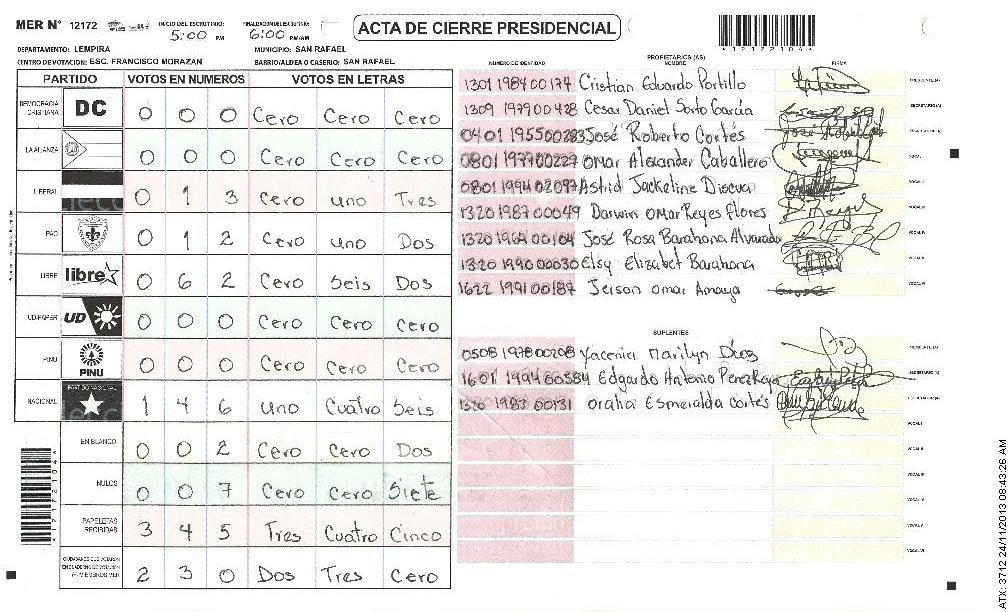 MER N° 12172 INICIO DEL ESCRUTINIO: 5:00 PM FINALIZACION DEL ESCRUTINIO: 6:00 PM/AM
ACTA DE CIERRE PRESIDENCIAL
1 2 1 7 2 1 0 4
DEPARTAMENTO: LEMPIRA MUNICIPIO: SAN RAFAEL
CENTRO DE VOTACION: ESC. FRANCISCO MORAZAN BARRIO/ALDEA O CASERIO: SAN RAFAEL
PARTIDO VOTOS EN NUMEROS VOTOS EN LETRAS
DEMOCRACIA CRISTIANA DC 0 0 0 Cero Cero Cero
LA ALIANZA 0 0 0 Cero Cero Cero
LIBERAL 0 1 3 Cero uno Tres
PAC 0 1 2 Cero uno Dos
LIBRE libre 0 6 2 Cero Seis Dos
UD-FAPER UD 0 0 0 Cero Cero Cero
PINU PINU 0 0 0 Cero Cero Cero
NACIONAL PARTIDO NACIONAL 1 4 6 uno Cuatro Seis
EN BLANCO 0 0 2 Cero Cero Dos
NULOS 0 0 7 Cero Cero Siete
PAPELETAS RECIBIDAS 3 4 5 Tres Cuatro Cinco
CIUDADANOS QUE VOTARON EN CUADERNO DE VOTACION (+) MIEMBROS MER 2 3 0 Dos Tres Cero
PROPIETARIOS (AS)
NUMERO DE IDENTIDAD NOMBRE FIRMA
1301 1984 00174 Cristian Eduardo Portillo PRESIDENTE(A)
1309 1979 00428 Cesar Daniel Sorto García SECRETARIO(A)
0401 1955 00283 José Roberto Cortés ESCRUTADOR(A)
0801 1977 00229 Omar Alexander Caballero VOCAL I
0801 1994 02097 Astrid Jackeline Discua VOCAL II
1320 1987 00049 Darwin Omar Reyes flores VOCAL III
1320 1964 00104 José Rosa Barahona Alvarado VOCAL IV
1320 1990 00030 Elsy Elizabet Barahona VOCAL V
1622 1991 00187 Jerson Omar Amaya VOCAL VI
SUPLENTES
0508 1978 00208 Yacenia Marilyn Díaz PRESIDENTE(A)
1601 1994 00584 Edgardo Antonio Perez SECRETARIO(A)
1320 1983 00131 Oralia Esmeralda Cortés ESCRUTADOR(A)
VOCAL I
VOCAL II
VOCAL III
VOCAL IV
VOCAL V
VOCAL VI
ATX: 3712 24/11/2013 08:43:26 AM